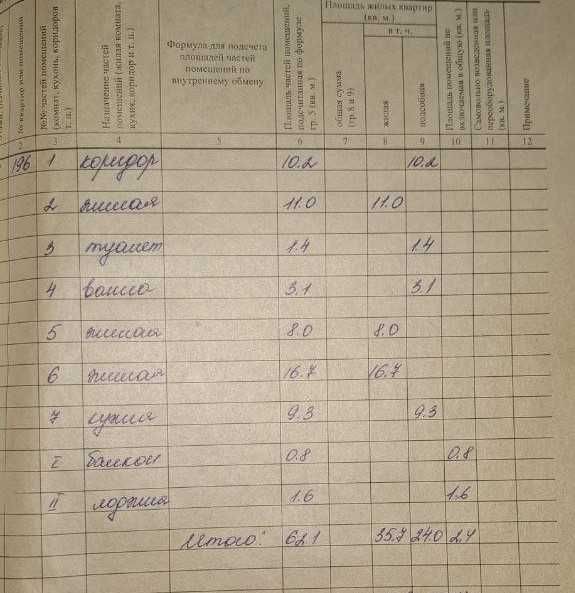 № квартир или помещений
№№частей помещений (комнат, кухонь, коридоров и т. п.)
Назначение частей помещений (жилая комната, кухня, коридор и т. п.)
Формула для подсчета площадей частей помещений по внутреннему обмену
Площадь частей помещений, подсчитанная по формуле гр. 5 (кв. м.)
Площадь жилых квартир (кв. м.)
в т. ч.
общая сумма (гр.8 и 9)
жилая
подсобная
Площадь помещений не включаемая в общую (кв. м.)
Самовольно возведенная или переоборудованная площадь (кв. м.)
Примечание
2 3 4 5 6 7 8 9 10 11 12
196 1 коридор 10.2 10.2
2 жилая 11.0 11.0
3 туалет 1.4 1.4
4 ванна 3.1 3.1
5 жилая 8.0 8.0
6 жилая 16.7 16.7
7 кухня 9.3 9.3
I балкон 0.8 0.8
II лоджия 1.6 1.6
Итого: 62.1 35.7 24.0 2.4